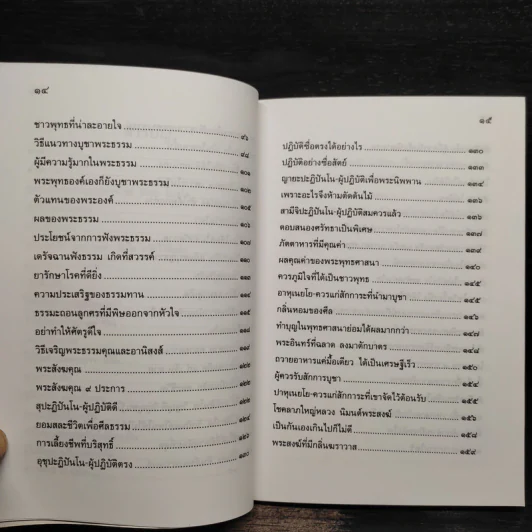 ๑๔
ชาวพุทธที่น่าละอายใจ ๙๖
วิธีแนวทางบูชาพระธรรม ๙๘
ผู้มีความรู้มากในพระธรรม ๑๐๑
พระพุทธองค์เองก็ยังบูชาพระธรรม ๑๐๒
ตัวแทนของพระองค์ ๑๐๕
ผลของพระธรรม
ประโยชน์จากการฟังพระธรรม ๑๐๗
เดรัจฉานฟังธรรม เกิดที่สวรรค์
ยารักษาโรคที่ดียิ่ง
ความประเสริฐของธรรมทาน
ธรรมะถอนลูกศรที่มีพิษออกจากหัวใจ
อย่าทำให้ศัตรูดีใจ
วิธีเจริญพระธรรมคุณและอานิสงส์
พระสังฆคุณ ๑๒๒
พระสังฆคุณ ๙ ประการ
สุปะฏิปันโน-ผู้ปฏิบัติดี
ยอมสละชีวิตเพื่อศีลธรรม
การเลี้ยงชีพที่บริสุทธิ์
อุชุปะฏิปันโน-ผู้ปฏิบัติตรง ๑๓๐
๑๕
ปฏิบัติซื่อตรงได้อย่างไร ๑๓๐
ปฏิบัติอย่างซื่อสัตย์ ๑๓๓
ญายะปะฏิปันโน-ผู้ปฏิบัติเพื่อพระนิพพาน ๑๓๔
เพราะอะไรจึงห้ามตัดต้นไม้ ๑๓๖
สามีจิปะฏิปันโน-ผู้ปฏิบัติสมควรแล้ว ๑๓๖
ตอบสนองศรัทธาเป็นพิเศษ ๑๓๗
ภัตตาหารที่มีคุณค่า ๑๓๙
ผลคุณค่าของพระพุทธศาสนา ๑๔๐
ควรภูมิใจที่ได้เป็นชาวพุทธ ๑๔๕
อาหุเนยโย-ควรแก่สักการะที่นำมาบูชา ๑๔๕
กลิ่นหอมของศีล
ทำบุญในพุทธศาสนาย่อมได้ผลมากกว่า ๑๔๗
พระอินทร์ที่ฉลาด ลงมาตักบาตร ๑๔๘
ถวายอาหารแค่มื้อเดียว ได้เป็นเศรษฐีเร็ว ๑๕๐
ผู้ควรรับสักการบูชา ๑๕๔
ปาหุเนยโย-ควรแก่สักการะที่เขาจัดไว้ต้อนรับ ๑๕๕
โชคลาภใหญ่หลวง นิมนต์พระสงฆ์ ๑๕๖
เป็นกันเองเกินไปก็ไม่ดี ๑๕๘
พระสงฆ์ที่มีกลิ่นฆราวาส ๑๕๙